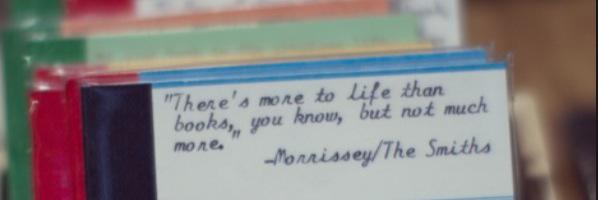 "There's more to life than
books,„ you know, but not much
more."
-Morrissey/The Smiths